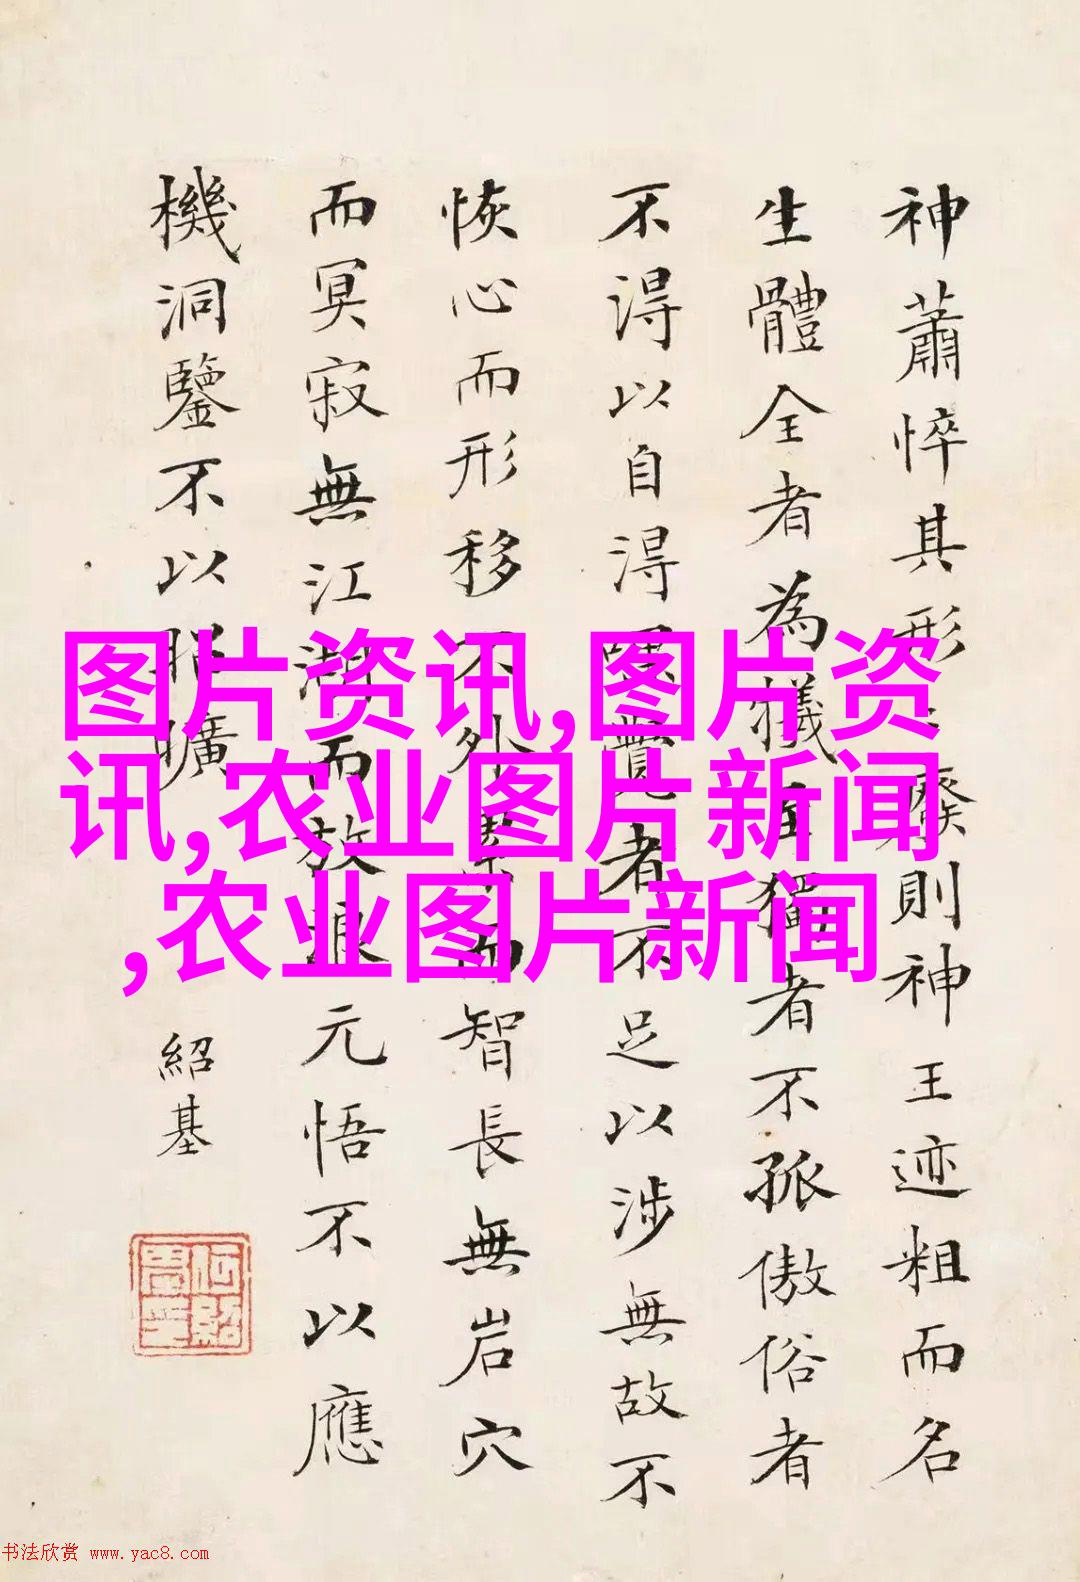 神蕭悴其形〻癈則神王迹粗而名
生體全者為犧獨者不孤傲俗者
不得以自得覺者不足以涉無故不
恢心而形移不外而智長無岩穴
而冥寂無江湖而放浪元悟不以應
機洞鑒不以昭曠
紹基
何紹基印
图片资讯,图片资
讯,农业图片新闻
,农业图片新闻
书法欣赏 www.yac8.com